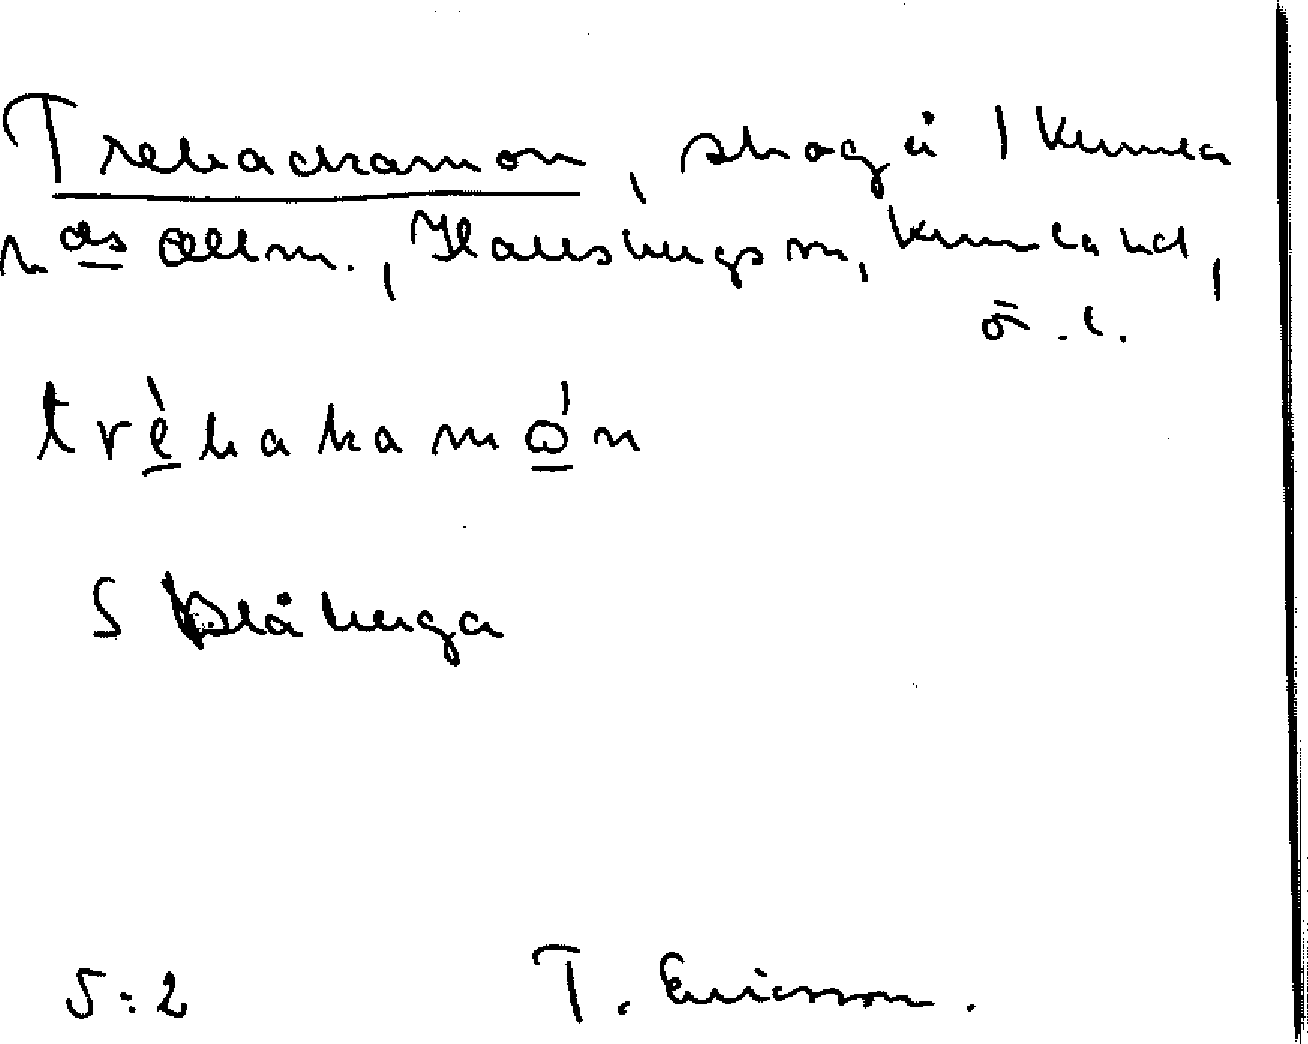 Trekackamon, skog å 1 Kumla
n:as allm., Hallsbergs sn, Kumla hd,
ö. l.
trèkakamón
S Blåberga
5:2 T. Ericsson.